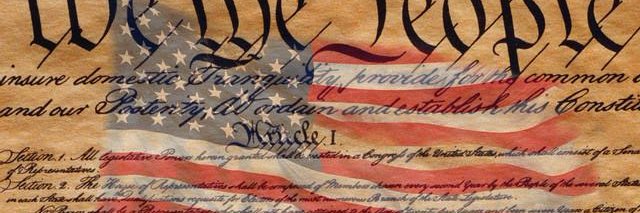 We the People
insure domestic Tranquility, provide for the common
and our Posterity, do ordain and establish this Consti
Article. I.
Section. 1. All legislative Powers herein granted shall be vested in a Congress of the United States, which shall consist of a Sena
of Representatives.
Section. 2. The House of Representatives shall be composed of Members chosen every second Year by the People of the several States
in each State shall have Qualifications requisite for Electors of the most numerous Branch of the State Legislature.
No Person shall be a Representative